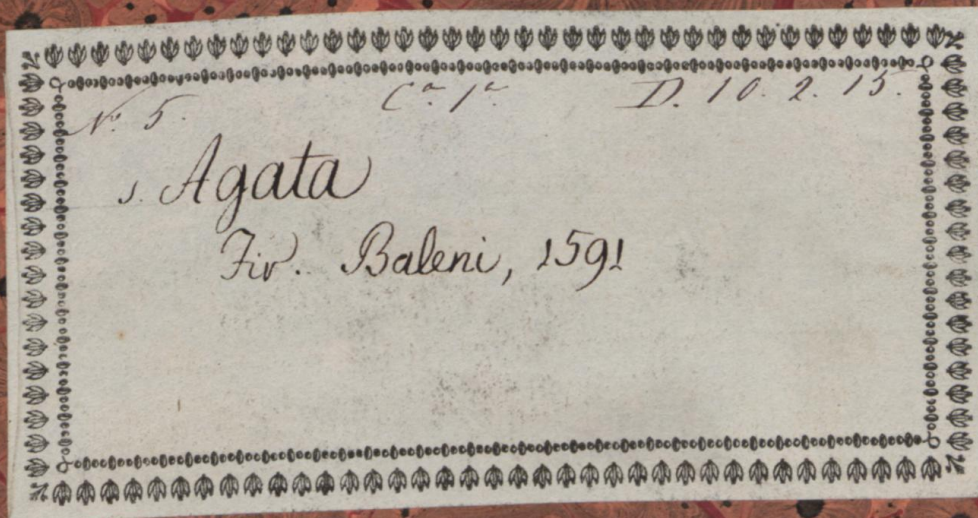 N.º 5. C.ª 1.ª D. 10. 2. 15.
s. Agata
Fir. Baleni, 1591